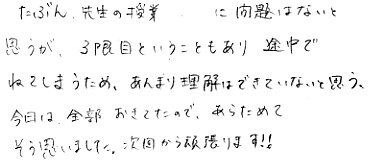 たぶん、先生の授業 に問題はないと
思うが、3限目ということもあり 途中で
ねてしまうため、あんまり理解はできていないと思う。
今日は、全部 おきてたので、あらためて
そう思いました。次回から頑張ります!!